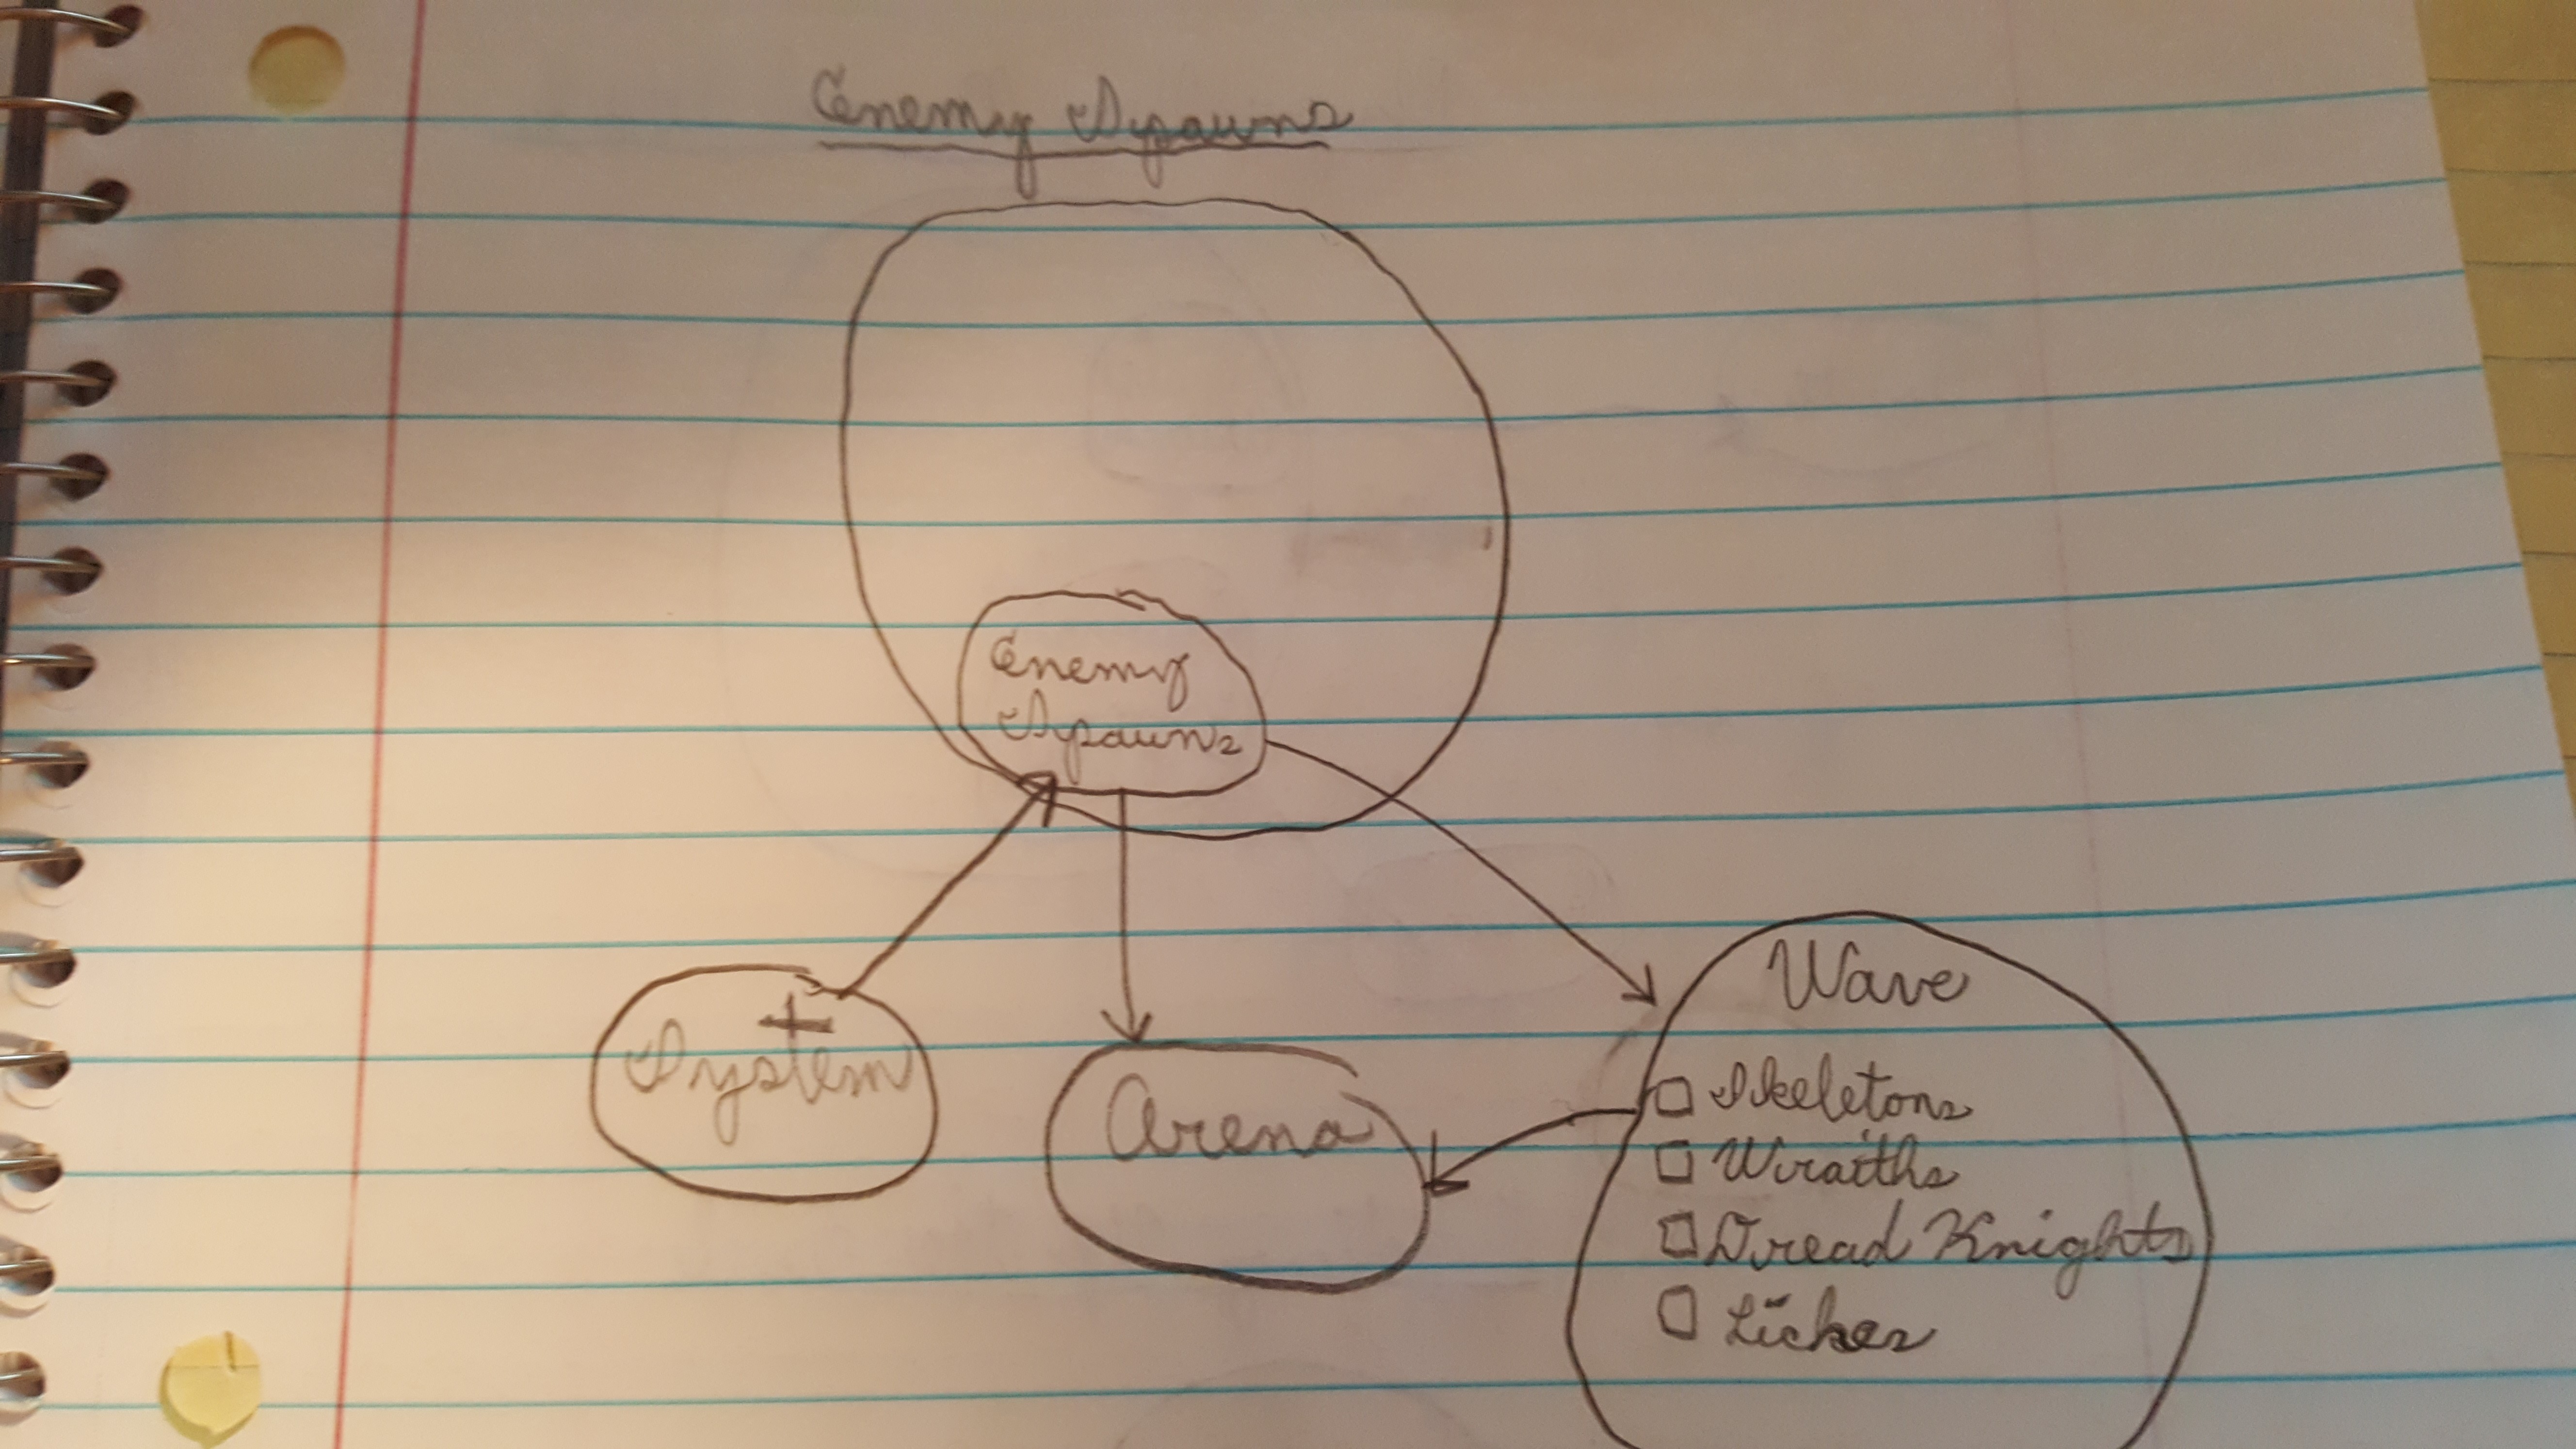 Enemy Spawns
Enemy
Spawns
System
Arena
Wave
Skeletons
Wraiths
Dread Knights
Liches